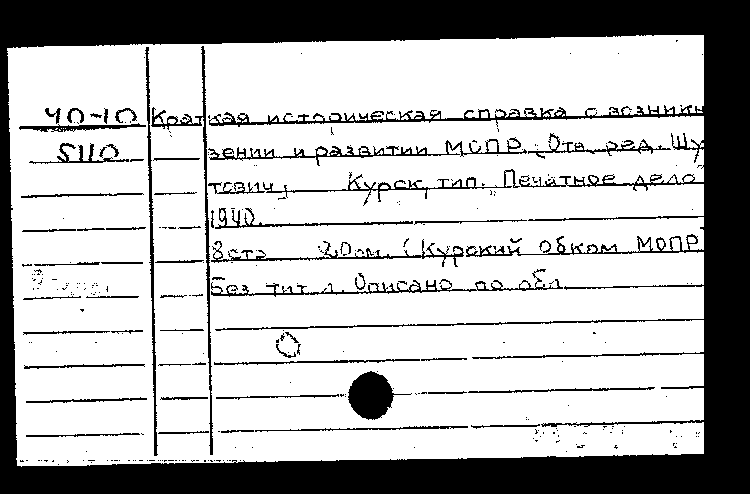 40-10 Краткая историческая справка о возникн
5110 вении и развитии МОПР. Отв. ред. Шу
тович, Курск, тип. „Печатное дело"
1940.
8 стр 20 см. (Курский Обком МОПР)
Без тит л. Описано по обл.